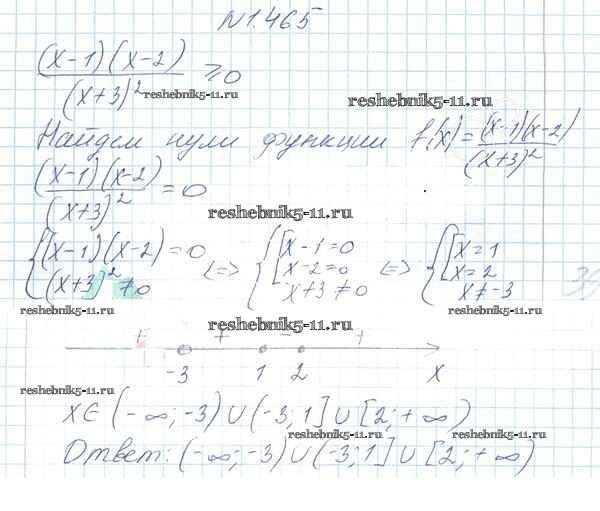 N1.465
(x-1)(x-2)/(x+3)² ≥0
reshebnik5-11.ru
reshebnik5-11.ru
Найдем нули функции f(x)=(x-1)(x-2)/(x+3)²
(x-1)(x-2)/(x+3)² =0
reshebnik5-11.ru
{(x-1)(x-2)=0 (x+3)²≠0 <=> {[x-1=0 x-2=0 x+3≠0 <=> {[x=1 x=2 x≠-3
reshebnik5-11.ru
reshebnik5-11.ru
reshebnik5-11.ru
+ + - +
-3 1 2 x
reshebnik5-11.ru
x∈(-∞;-3)∪(-3;1]∪[2;+∞)
reshebnik5-11.ru
reshebnik5-11.ru
Ответ: (-∞;-3)∪(-3;1]∪[2;+∞)